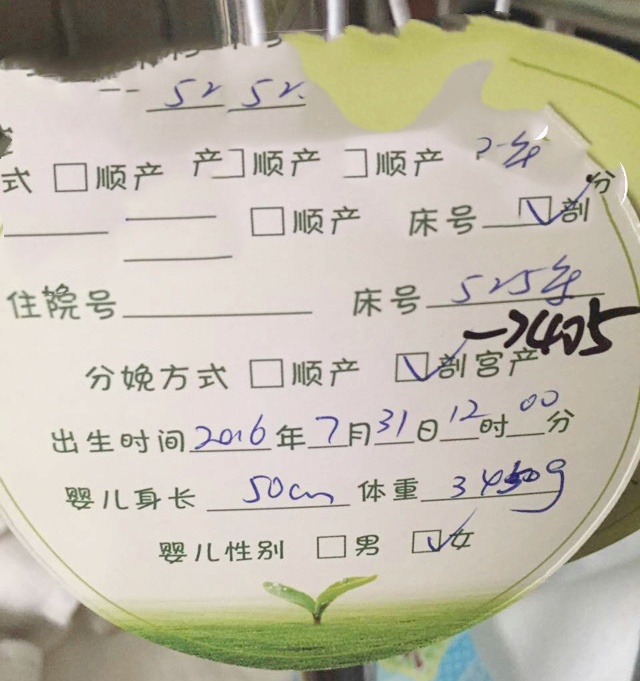 52 52
式 □顺产 产 □顺产 □顺产
□顺产 床号 ☑剖 分
住院号 床号 525年
→405
分娩方式 □顺产 ☑剖宫产
出生时间 2016 年 7 月 31 日 12 时 00 分
婴儿身长 50cm 体重 3450g
婴儿性别 □男 ☑女